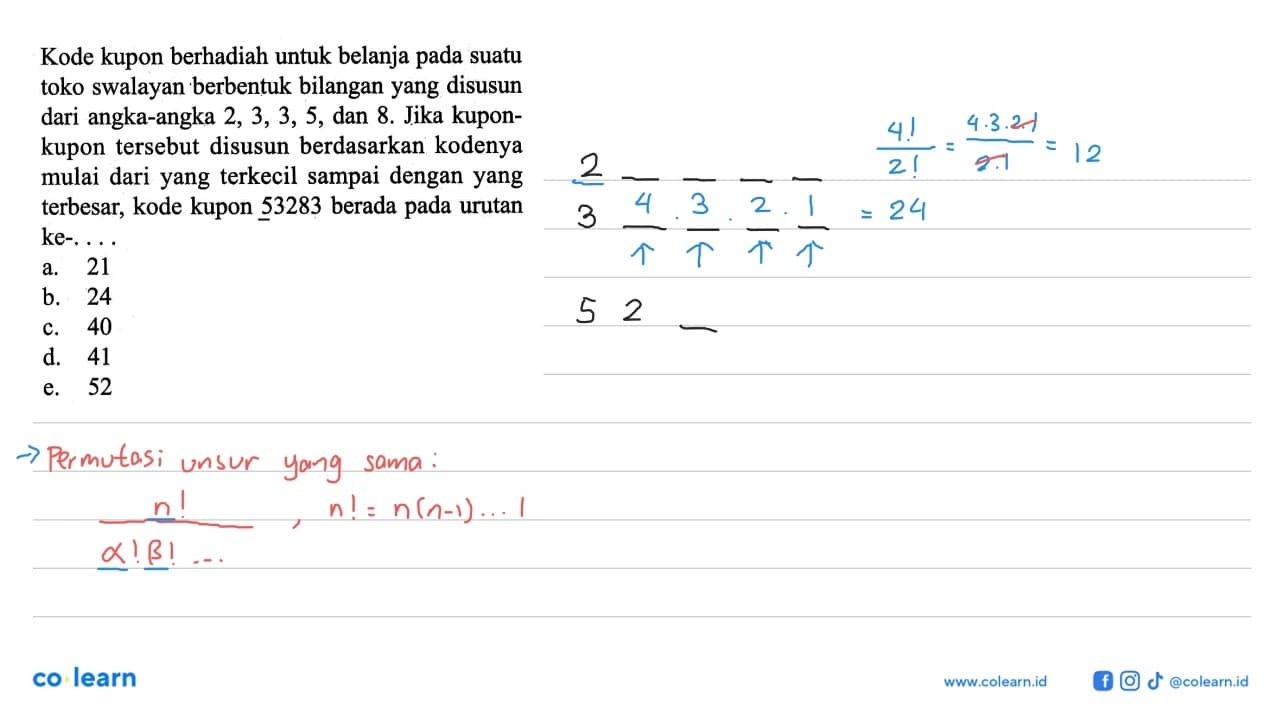 Kode kupon berhadiah untuk belanja pada suatu
toko swalayan berbentuk bilangan yang disusun
dari angka-angka 2, 3, 3, 5, dan 8. Jika kupon-
kupon tersebut disusun berdasarkan kodenya
mulai dari yang terkecil sampai dengan yang
terbesar, kode kupon 53283 berada pada urutan
ke-. . . .
a. 21
b. 24
c. 40
d. 41
e. 52
2 _ _ _ _ 4!/2! = 4.3.2.1/2.1 = 12
3 4 . 3 . 2 . 1 = 24
↑ ↑ ↑ ↑
5 2 _
→ Permutasi unsur yang sama :
n!/α!β!... , n! = n(n-1)... 1
co learn
www.colearn.id @colearn.id